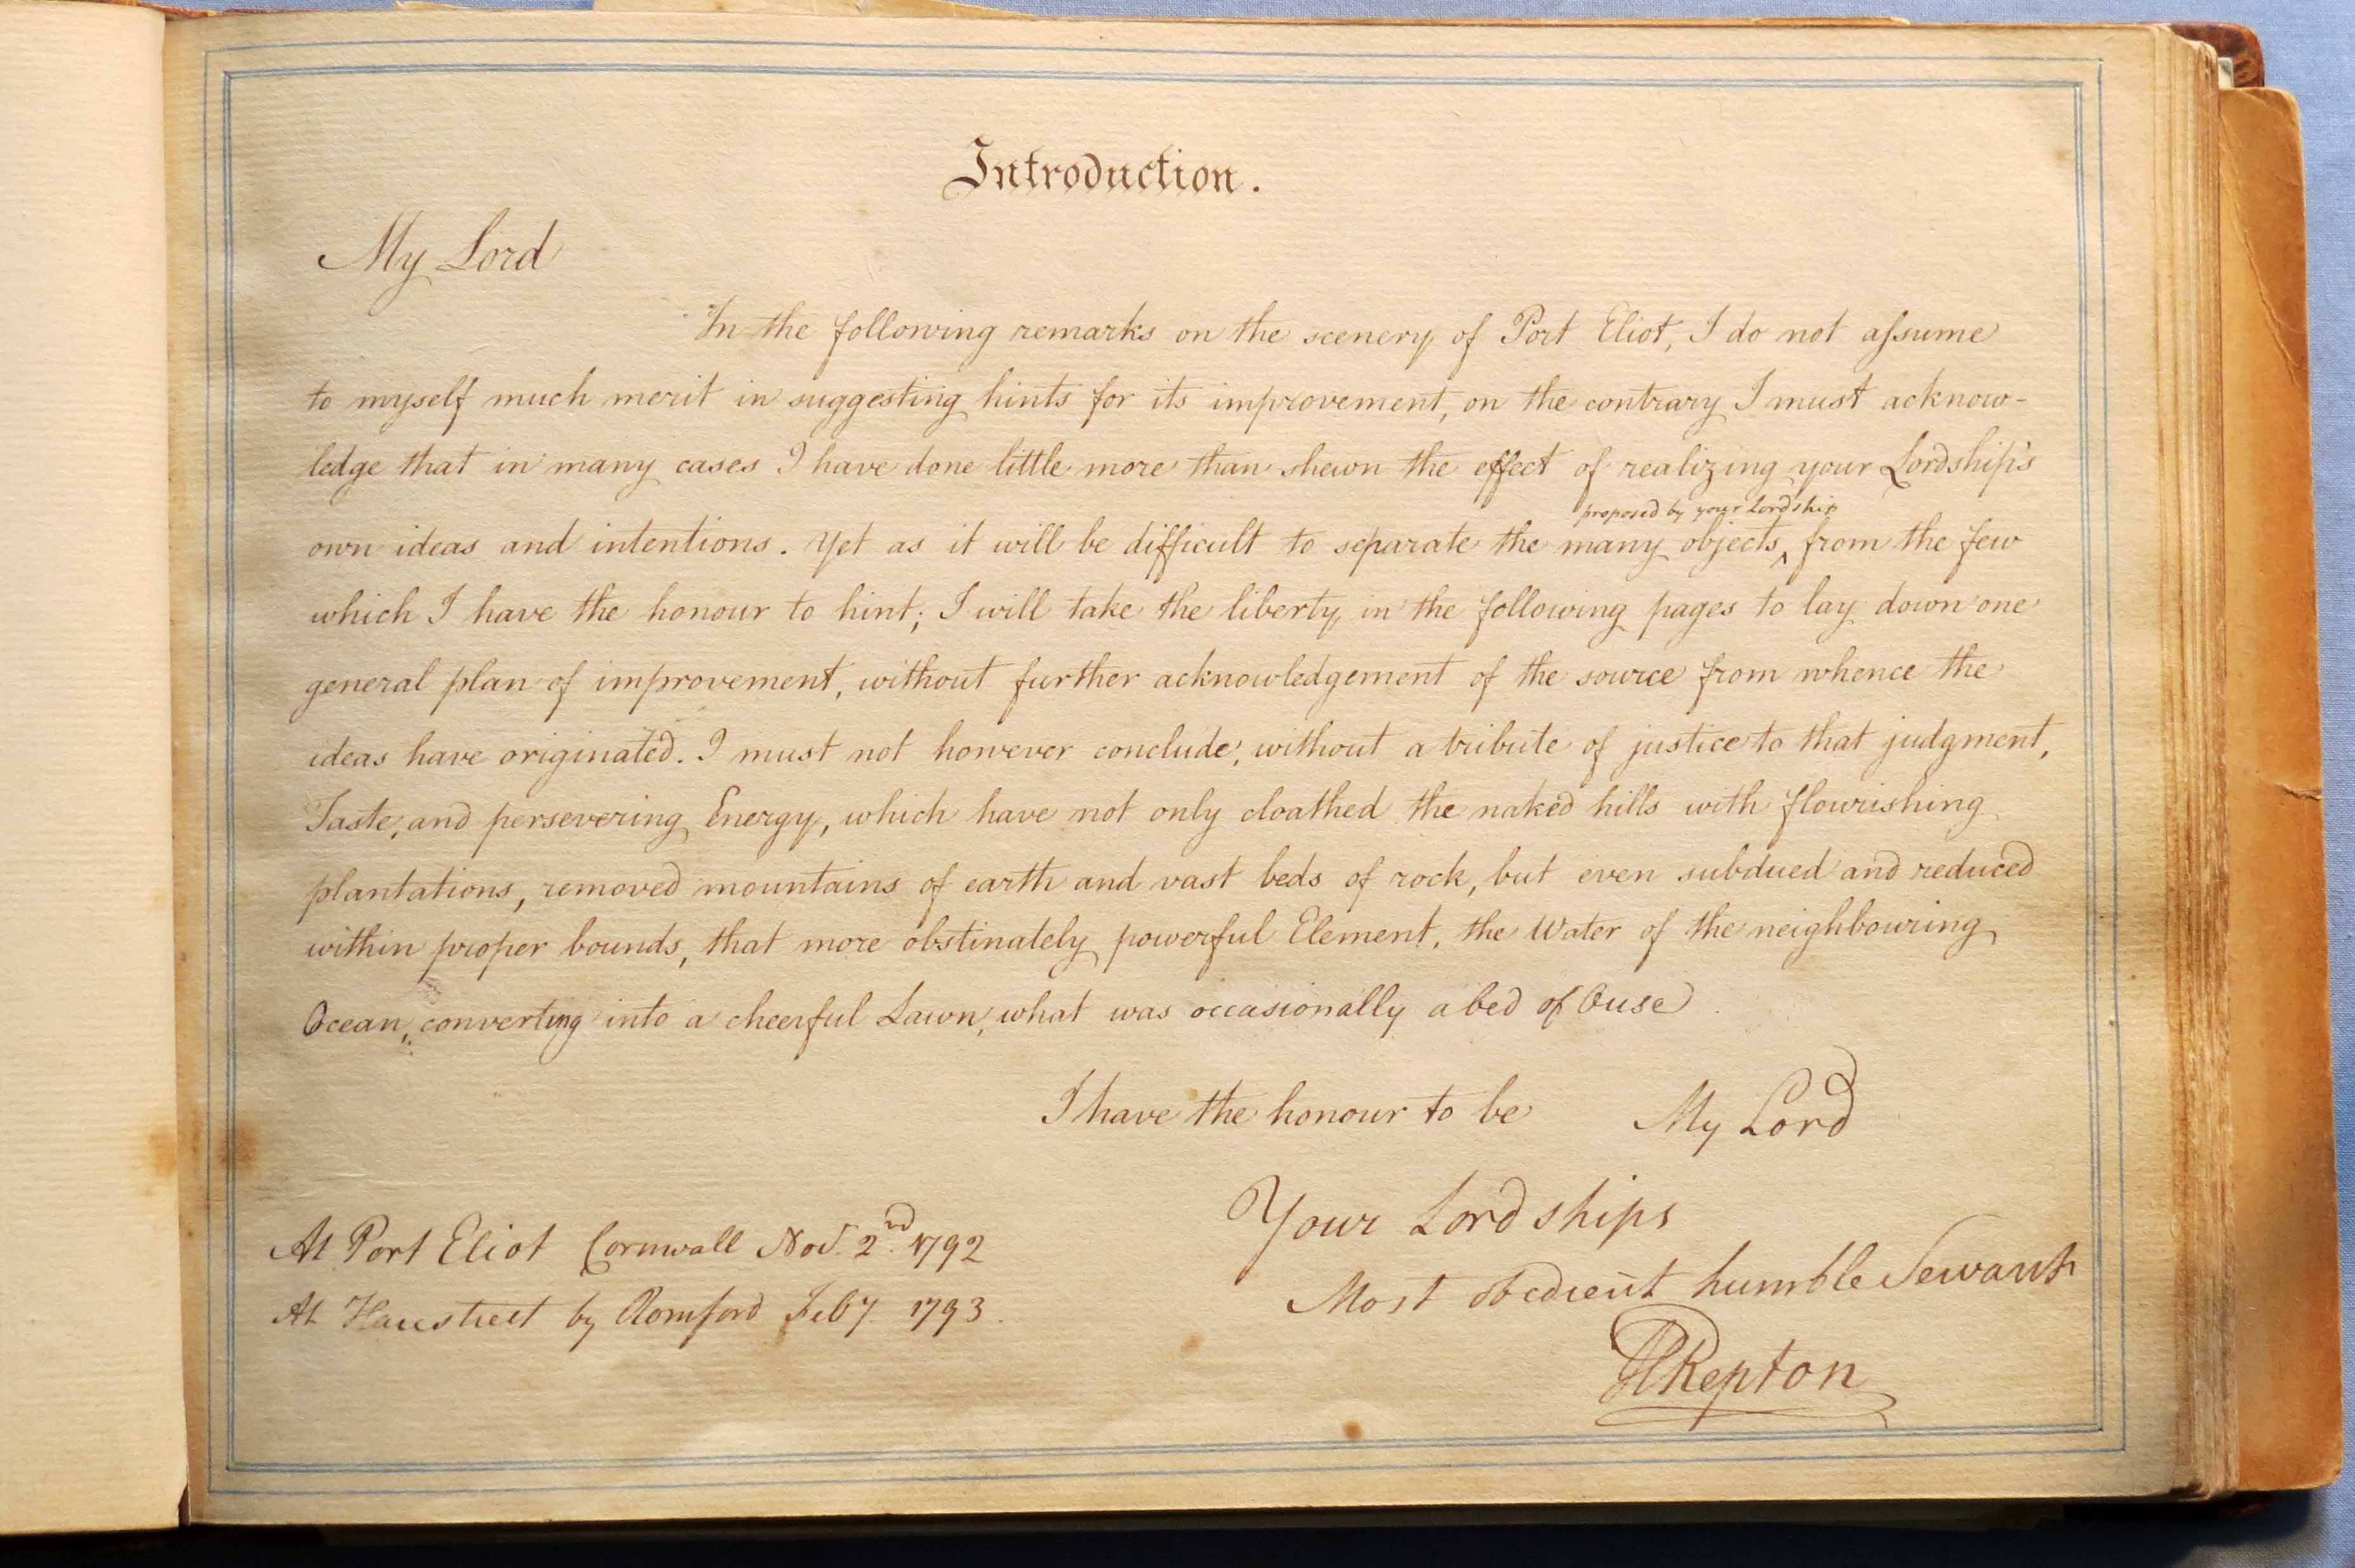 Introduction.
My Lord
In the following remarks on the scenery of Port Eliot, I do not aſsume
to myself much merit in suggesting hints for its improvement, on the contrary I must acknow-
ledge that in many cases I have done little more than shewn the effect of realizing your Lordship's
proposed by your Lordship
own ideas and intentions. Yet as it will be difficult to separate the many objects‸ from the few
which I have the honour to hint; I will take the liberty in the following pages to lay down one
general plan of improvement, without further acknowledgement of the source from whence the
ideas have originated. I must not however conclude, without a tribute of justice to that judgment,
Taste, and persevering Energy, which have not only cloathed the naked hills with flourishing
plantations, removed mountains of earth and vast beds of rock, but even subdued and reduced
within proper bounds, that more obstinately powerful Element, the Water of the neighbouring
Ocean, converting into a cheerful Lawn, what was occasionally a bed of Ouse
I have the honour to be My Lord
Your Lordships
At Port Eliot Cornwall Nov. 2nd. 1792
Most obedient humble Servant
At Harestreet by Romford Feb 7. 1793.
H Repton